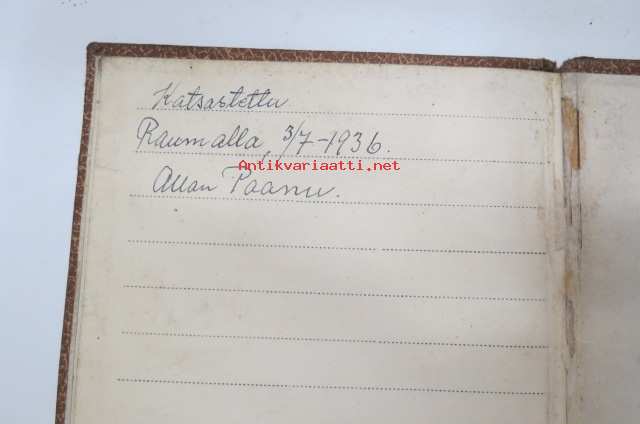 Katsastettu
Raumalla, 3/7-1936.
Antikvariaatti.net
Allan Paanu.